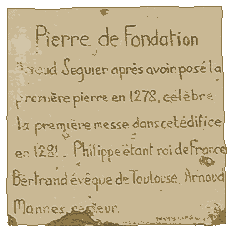 Pierre de Fondation
Arnaud Seguier après avoir posé la
première pierre en 1278, célèbre
la première messe dans cet édifice
en 1281. Philippe étant roi de France
Bertrand évêque de Toulouse, Arnoud
recteur.